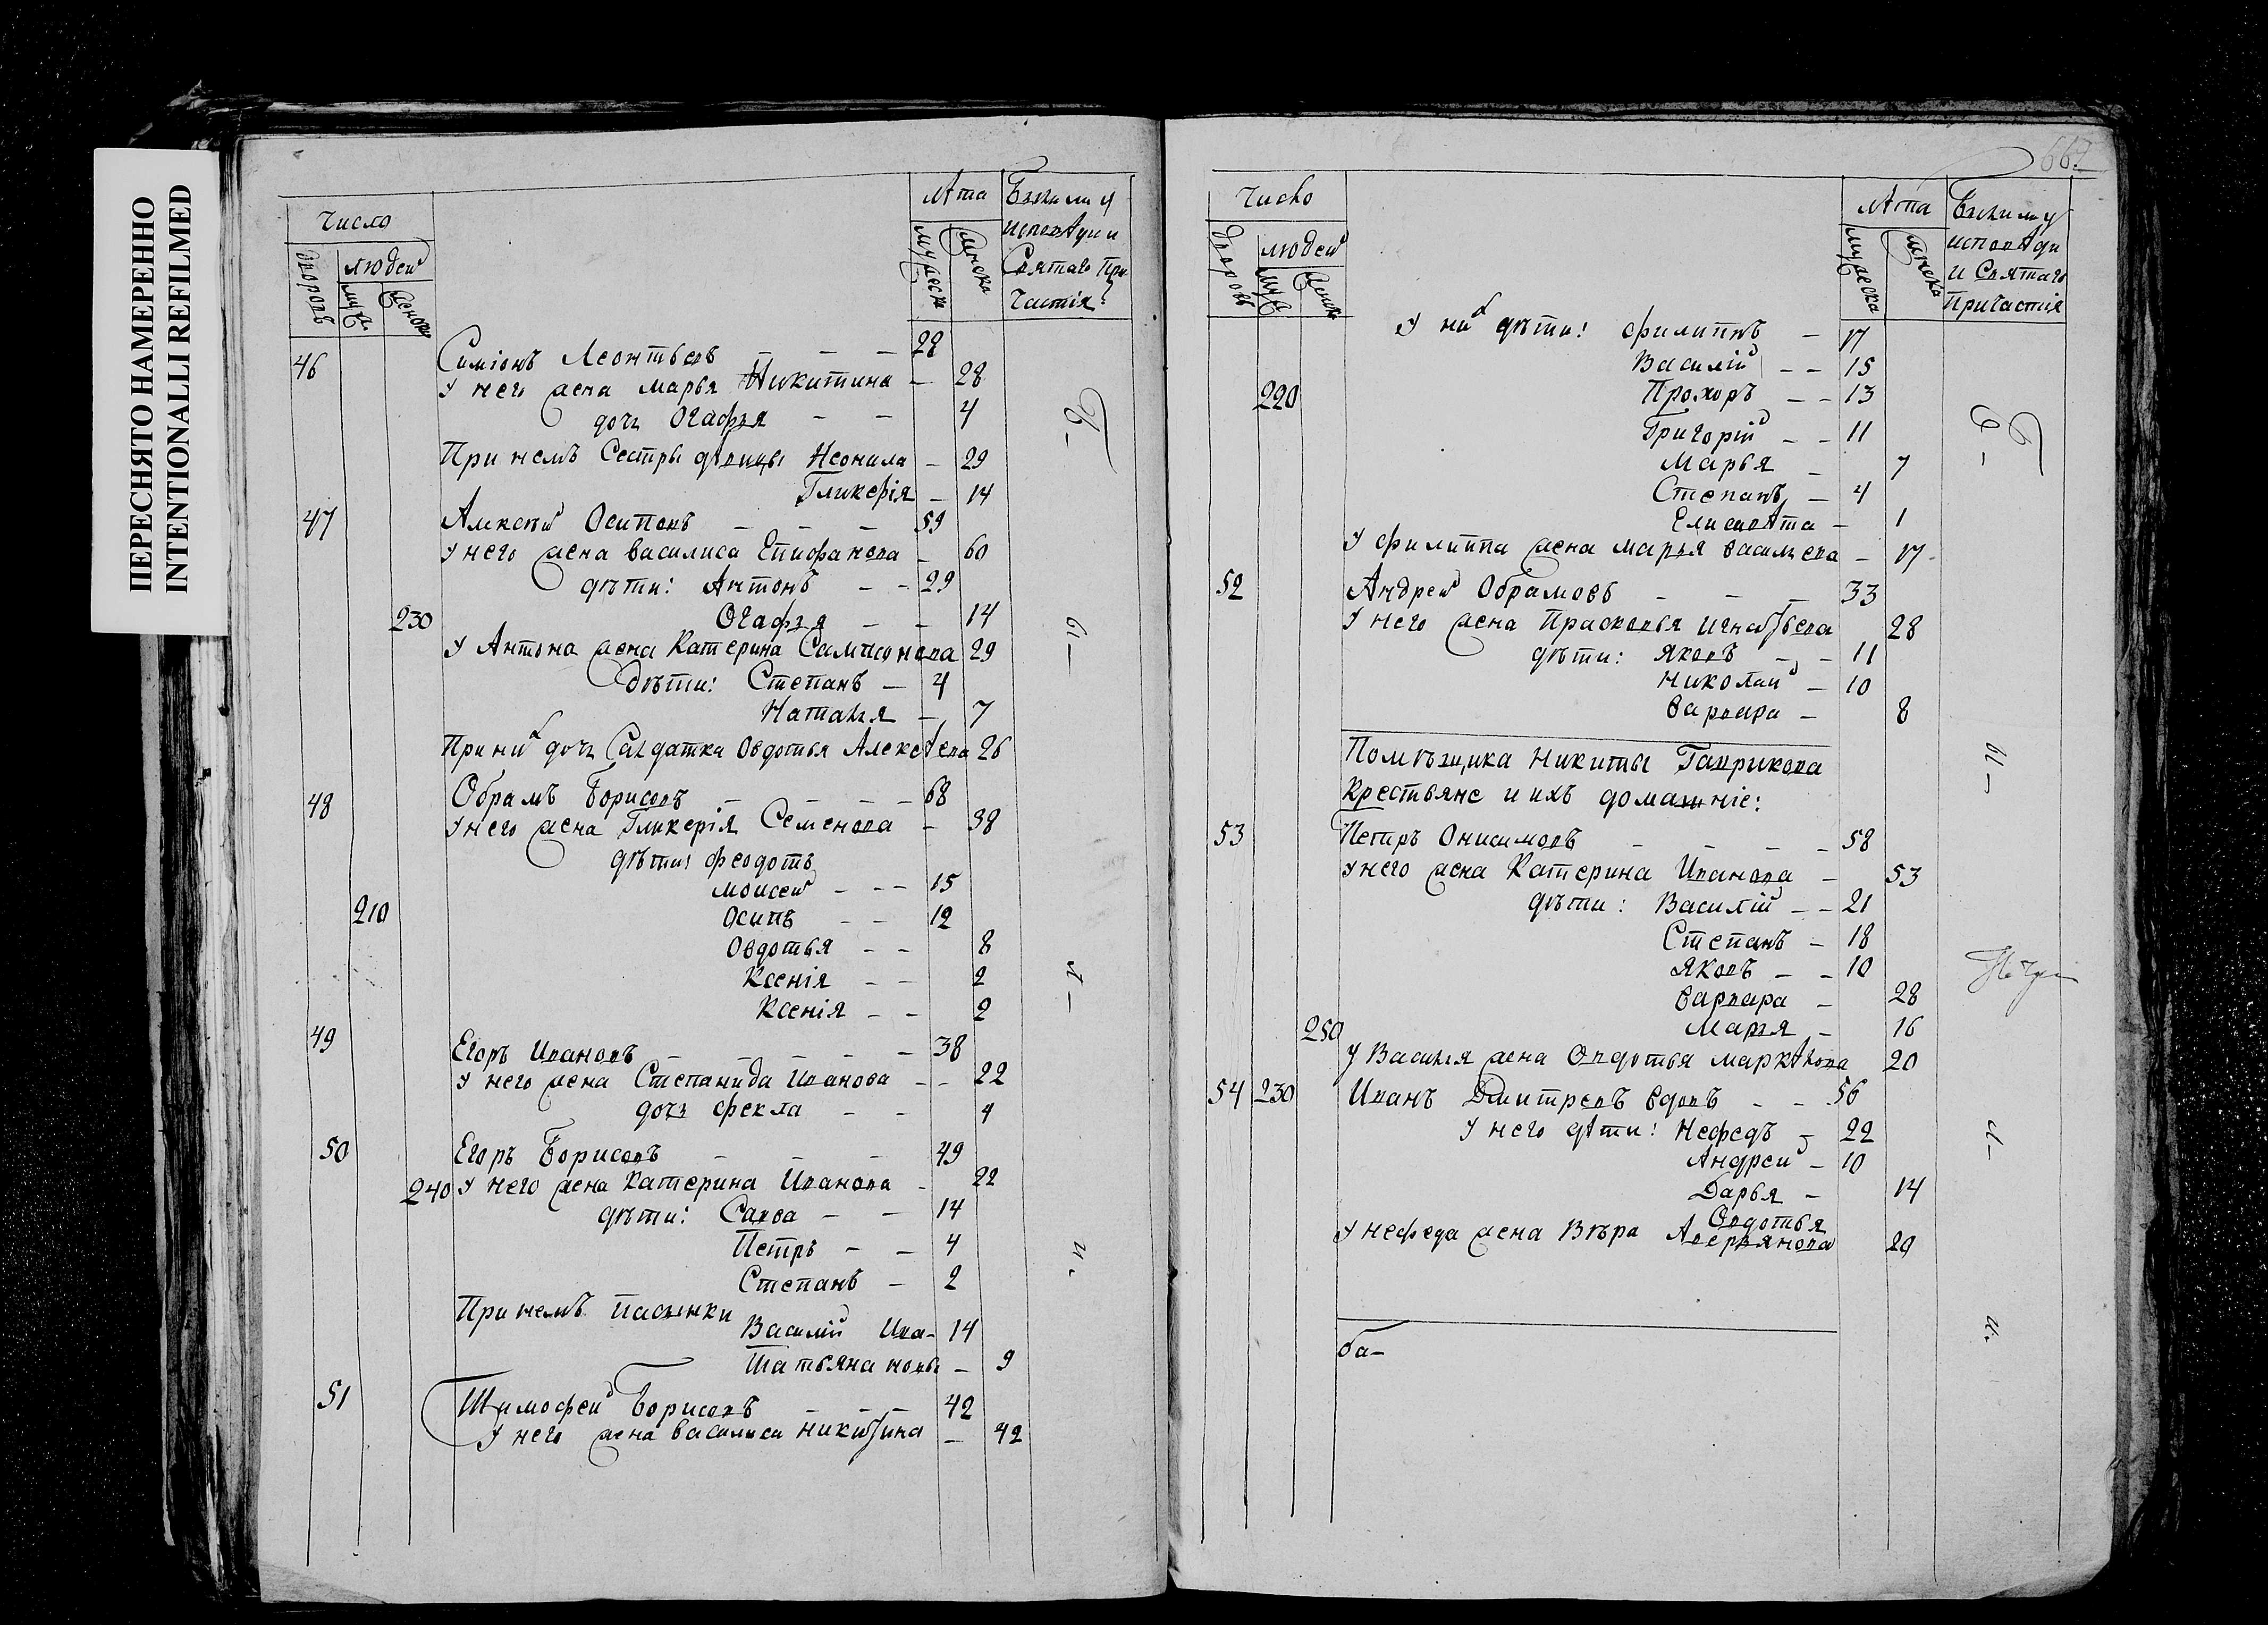 ПЕРЕСНЯТО НАМЕРЕННО
INTENTIONALLI REFILMED
Число
Лѣта
Были ли у
исповѣди и
Святаго При-
частія?
дворовъ
людей
муж.
женск.
мужеска
женска
46 Симіонъ Леонтьевъ – – – 28
У него жена Марья Никитина – 28
дочь Огафья – – 4
При немъ Сестры дѣвицы Неонила – 29
Гликерія – 14
47 Алексѣй Осиповъ – – – 59
У него жена Василиса Епифанова – 60
дѣти: Антонъ – – 29
230 Огафья – – 14
У Антона жена Катерина Сампсонова 29
Дѣти: Степанъ – 4
Наталья – 7
При них дочь Салдатка Овдотья Алексѣева 26
48 Обрамъ Борисовъ – – – – 68
У него жена Гликерія Семенова – 38
дѣти: Феодотъ
Моисей – – – 15
210 Осипъ – – 12
Овдотья – – 8
Ксенія – – 2
Ксенія – – 2
49 Егоръ Ивановъ – – – – – 38
У него жена Степанида Иванова – – 22
дочь Фекла – – 4
50 Егоръ Борисовъ – – – 49
240 У него жена Катерина Иванова – 22
дѣти: Савва – – 14
Петръ – – 4
Степанъ – 2
При немъ пасынки
Василій Ива- 14
Татьяна новы – 9
51 Тимофей Борисовъ – – – 42
У него жена Василиса Никитина – 42
б-
ы-
л-
и.
667
Число
Лѣта
Были ли у
исповѣди
и Святаго
Причастія
дворовъ
людей
муж
женск
мужеска
женска
У них дѣти: Филиппъ – 17
Василій – – 15
220 Прохоръ – – 13
Григорій – – 11
Марья – 7
Степанъ – 4
Елисавѣта – 1
У Филиппа жена Марья Васильева – 17
52 Андрей Обрамовъ – – – 33
У него жена Прасковья Игнатьева 28
дѣти: Яковъ – – 11
Николай – 10
Варвара – 8
Помѣщика Никиты Гаврикова
Крестьяне и ихъ домашніе:
53 Петръ Онисимовъ – – – – 58
У него жена Катерина Иванова – 53
дѣти: Василій – – 21
Степанъ – 18
Яковъ – – 10
Варвара – 28
250 Марья – 16
У Василья жена Овдотья Маркѣлова 20
54 230 Иванъ Дмитревъ вдовъ – – 56
У него дѣти: Нефедъ – 22
Андрей – 10
Дарья – 14
Овдотья
У Нефеда жена Вѣра Аверьянова 29
ба-
б-
ы-
л-
и.